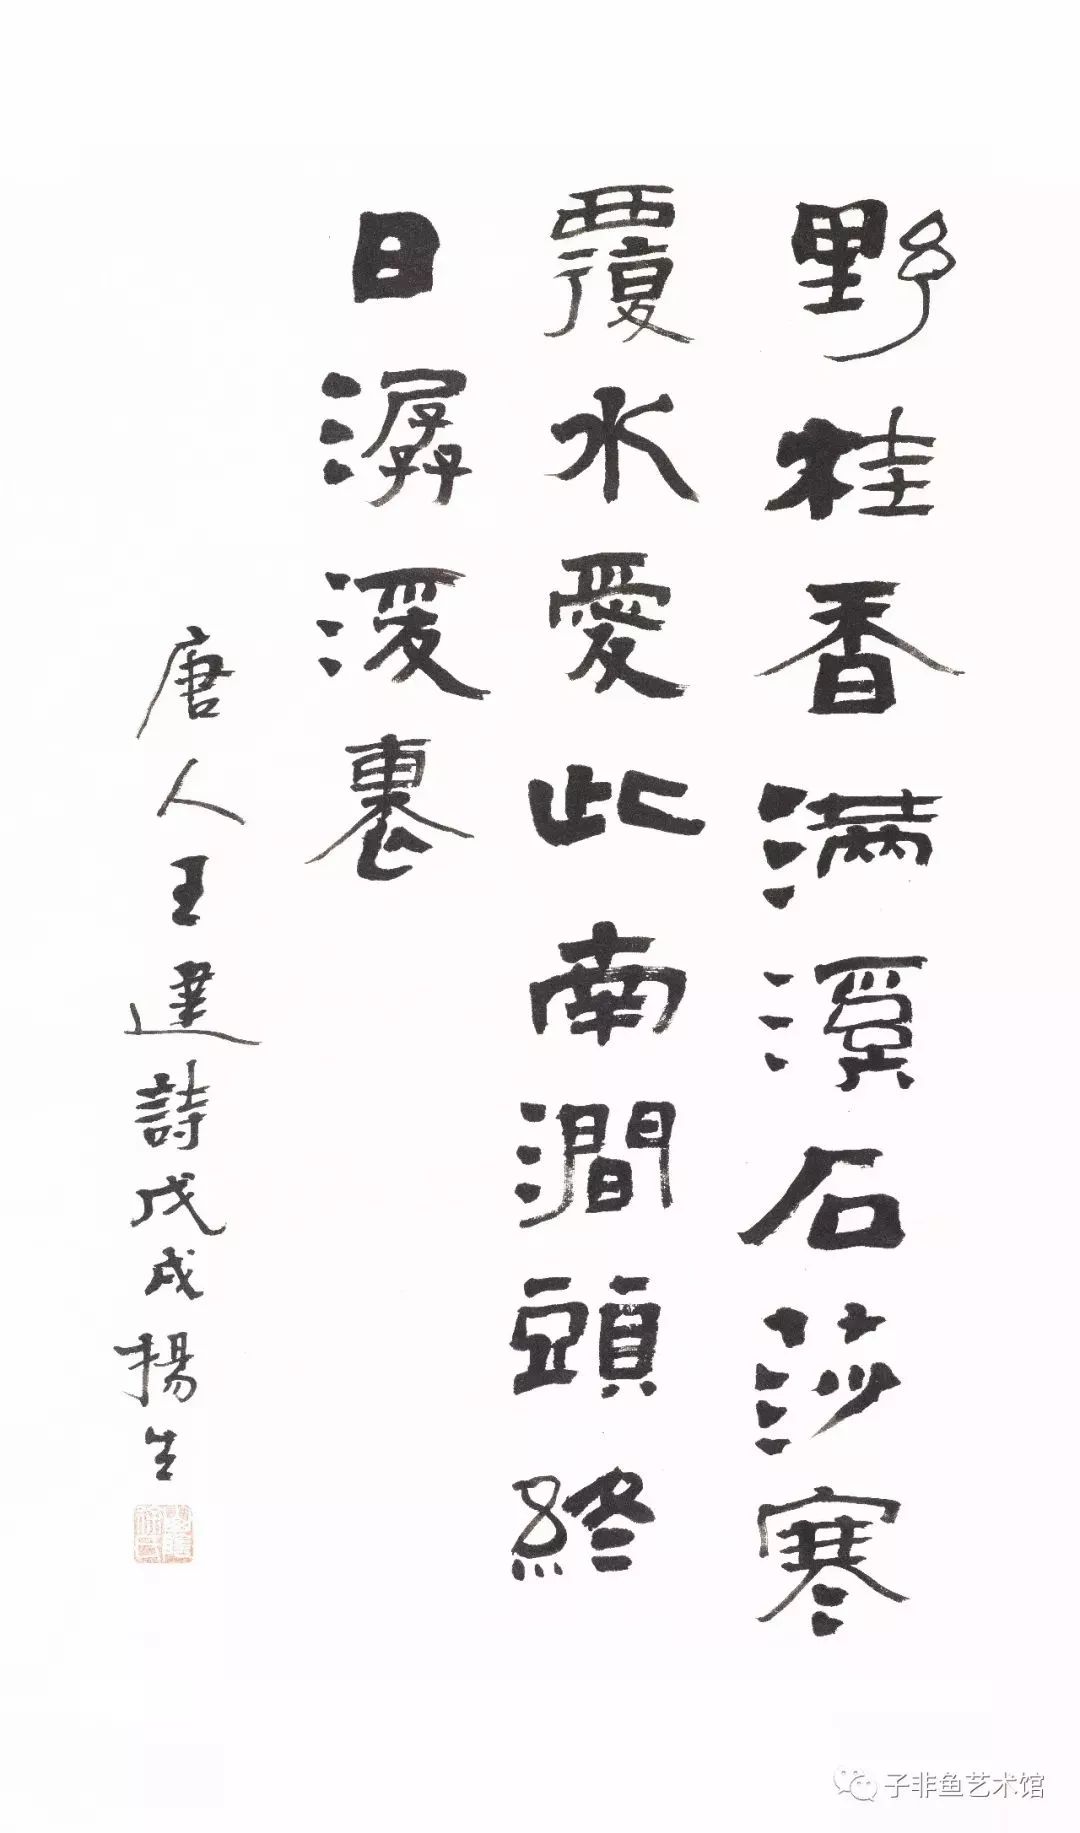 野桂香满溪石莎寒
覆水愛此南澗頭終
日潺湲裏
唐人王建詩戊戌揚生
子非鱼艺术馆